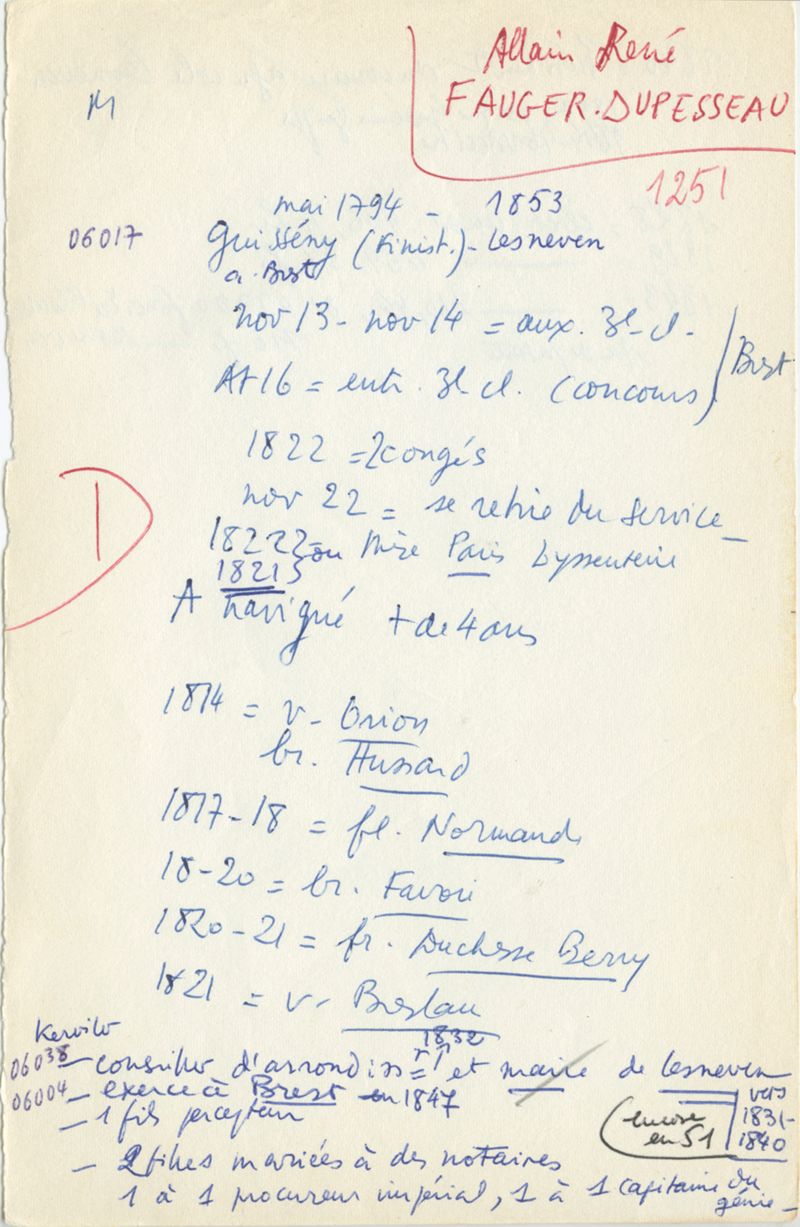 Allain René
FAUGER-DUPESSEAU
M
1251
mai 1794 - 1853
06017 Guissény (Finist.) - Lesneven
a. Brest
nov 13 - nov 14 = aux. 3e cl.
At 16 = entr. 3e cl. (concours) Brest
1822 = 2 congés
nov 22 = se retire du service -
D
1822 = ou Thèse Paris Dyssenterie
1821
A navigué + de 4 ans
1814 = v - Orion
br. Hussard
1817-18 = fl. Normande
18-20 = br. Favori
1820-21 = fr. Duchesse Berry
1821 = v - Breslau
Kerviler
1832
06038 - conseiller d'arrondiss = t et maire de Lesneven
06004 - exerce à Brest en 1847
vers 1831-1840
(encore en 51
- 1 fils percepteur
- 2 filles mariées à des notaires
1 à 1 procureur impérial, 1 à 1 capitaine du génie -